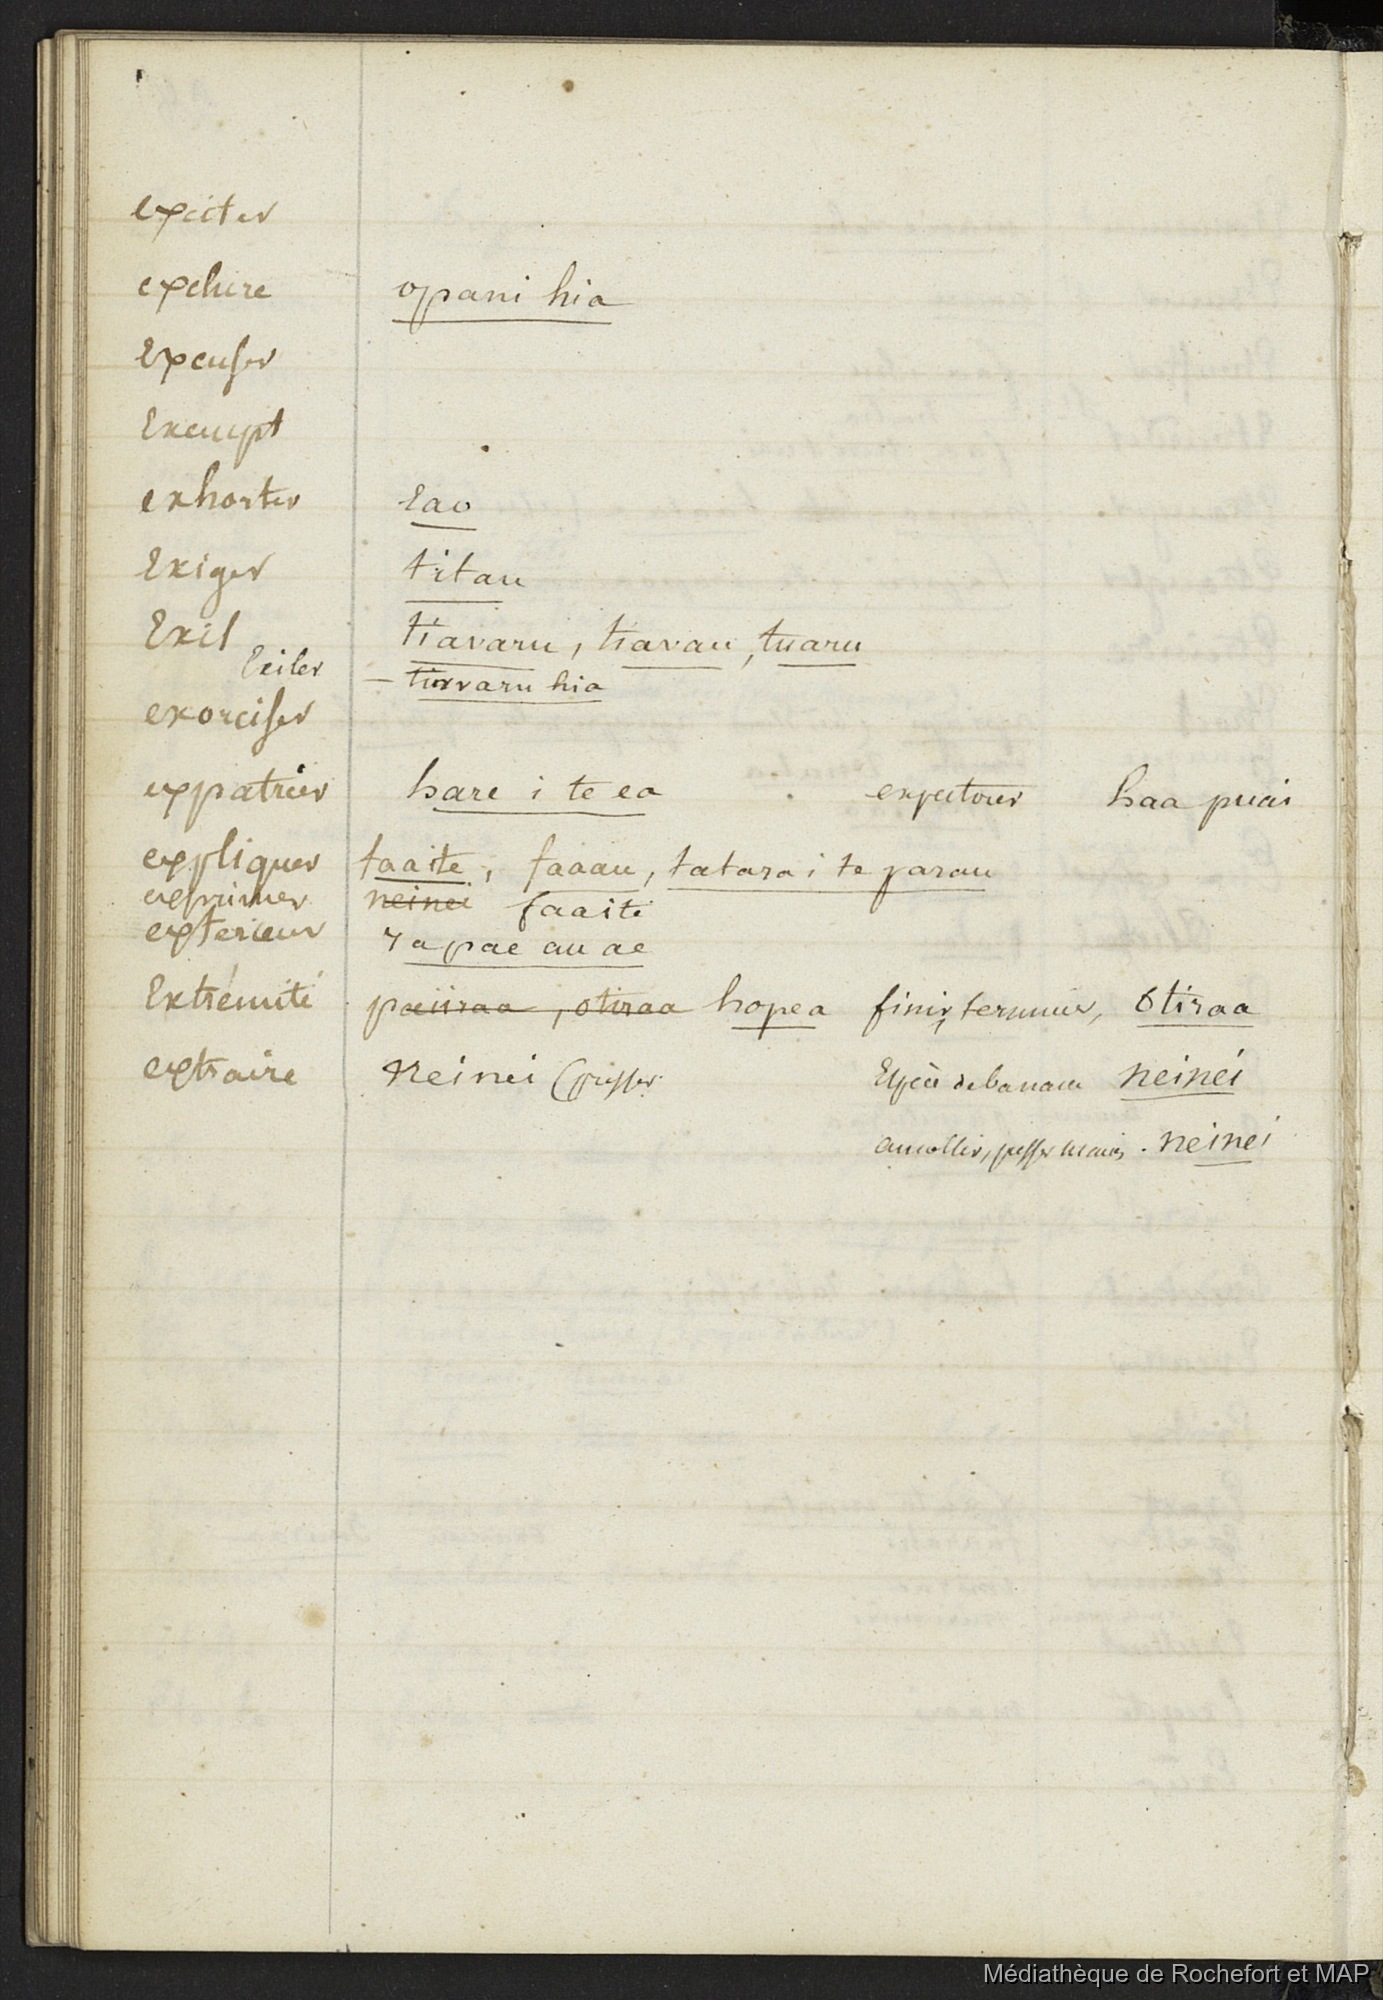 exciter
exclure opani hia
Excuser
Exempt
exhorter Eao
Exiger titau
Exil tiavaru, tiavau, tuaru
Exiler – tiavaru hia
exorciser
expatrier hare i te ea expectorer haa puai
expliquer faaite, faaau, tatara i te parau
exprimer neinei faaite
exterieur rapae au ae
Extrémité paiiraa, otiraa hopea finir, terminer, otiraa
extraire neinei (presser Espèce de banane neinei
amollir, presser mains. neinei
Médiathèque de Rochefort et MAP